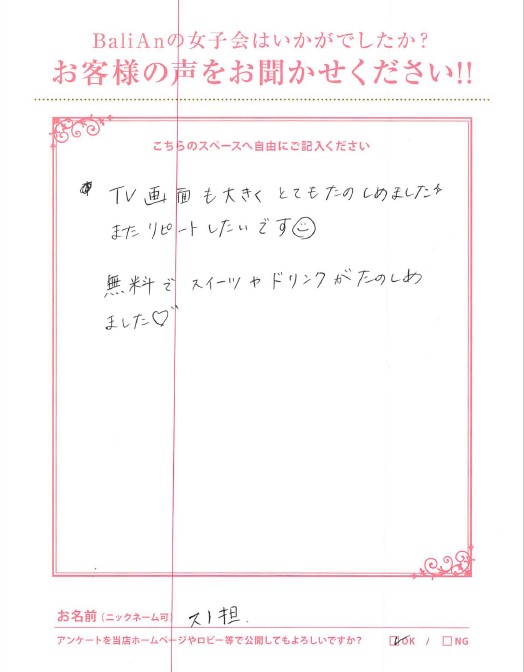 BaliAnの女子会はいかがでしたか?
お客様の声をお聞かせください!!
こちらのスペースへ自由にご記入ください
TV画面も大きくとてもたのしめました
またリピートしたいです☺
無料でスイーツやドリンクがたのしめ
ました♡
お名前(ニックネーム可) スト担.
アンケートを当店ホームページやロビー等で公開してもよろしいですか? ☑OK / □NG